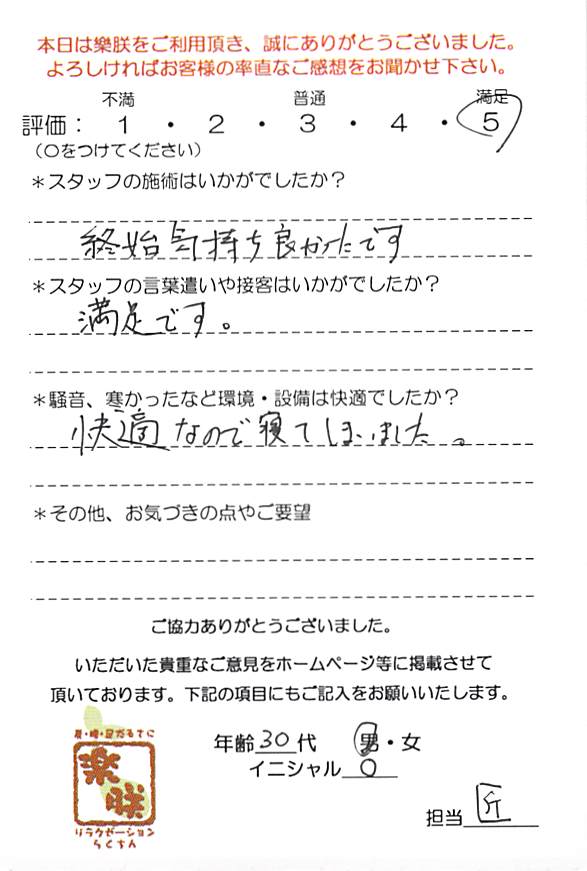 本日は樂朕をご利用頂き、誠にありがとうございました。
よろしければお客様の率直なご感想をお聞かせ下さい。
不満 普通 満足
評価： 1 ・ 2 ・ 3 ・ 4 ・ 5
（○をつけてください）
＊スタッフの施術はいかがでしたか？
終始気持ち良かったです
＊スタッフの言葉遣いや接客はいかがでしたか？
満足です。
＊騒音、寒かったなど環境・設備は快適でしたか？
快適なので寝てしまいました。
＊その他、お気づきの点やご要望
ご協力ありがとうございました。
いただいた貴重なご意見をホームページ等に掲載させて
頂いております。下記の項目にもご記入をお願いいたします。
年齢30代 男・女
イニシャル O
担当 匠
足だるてに
楽朕
リラクゼーション
らくちん